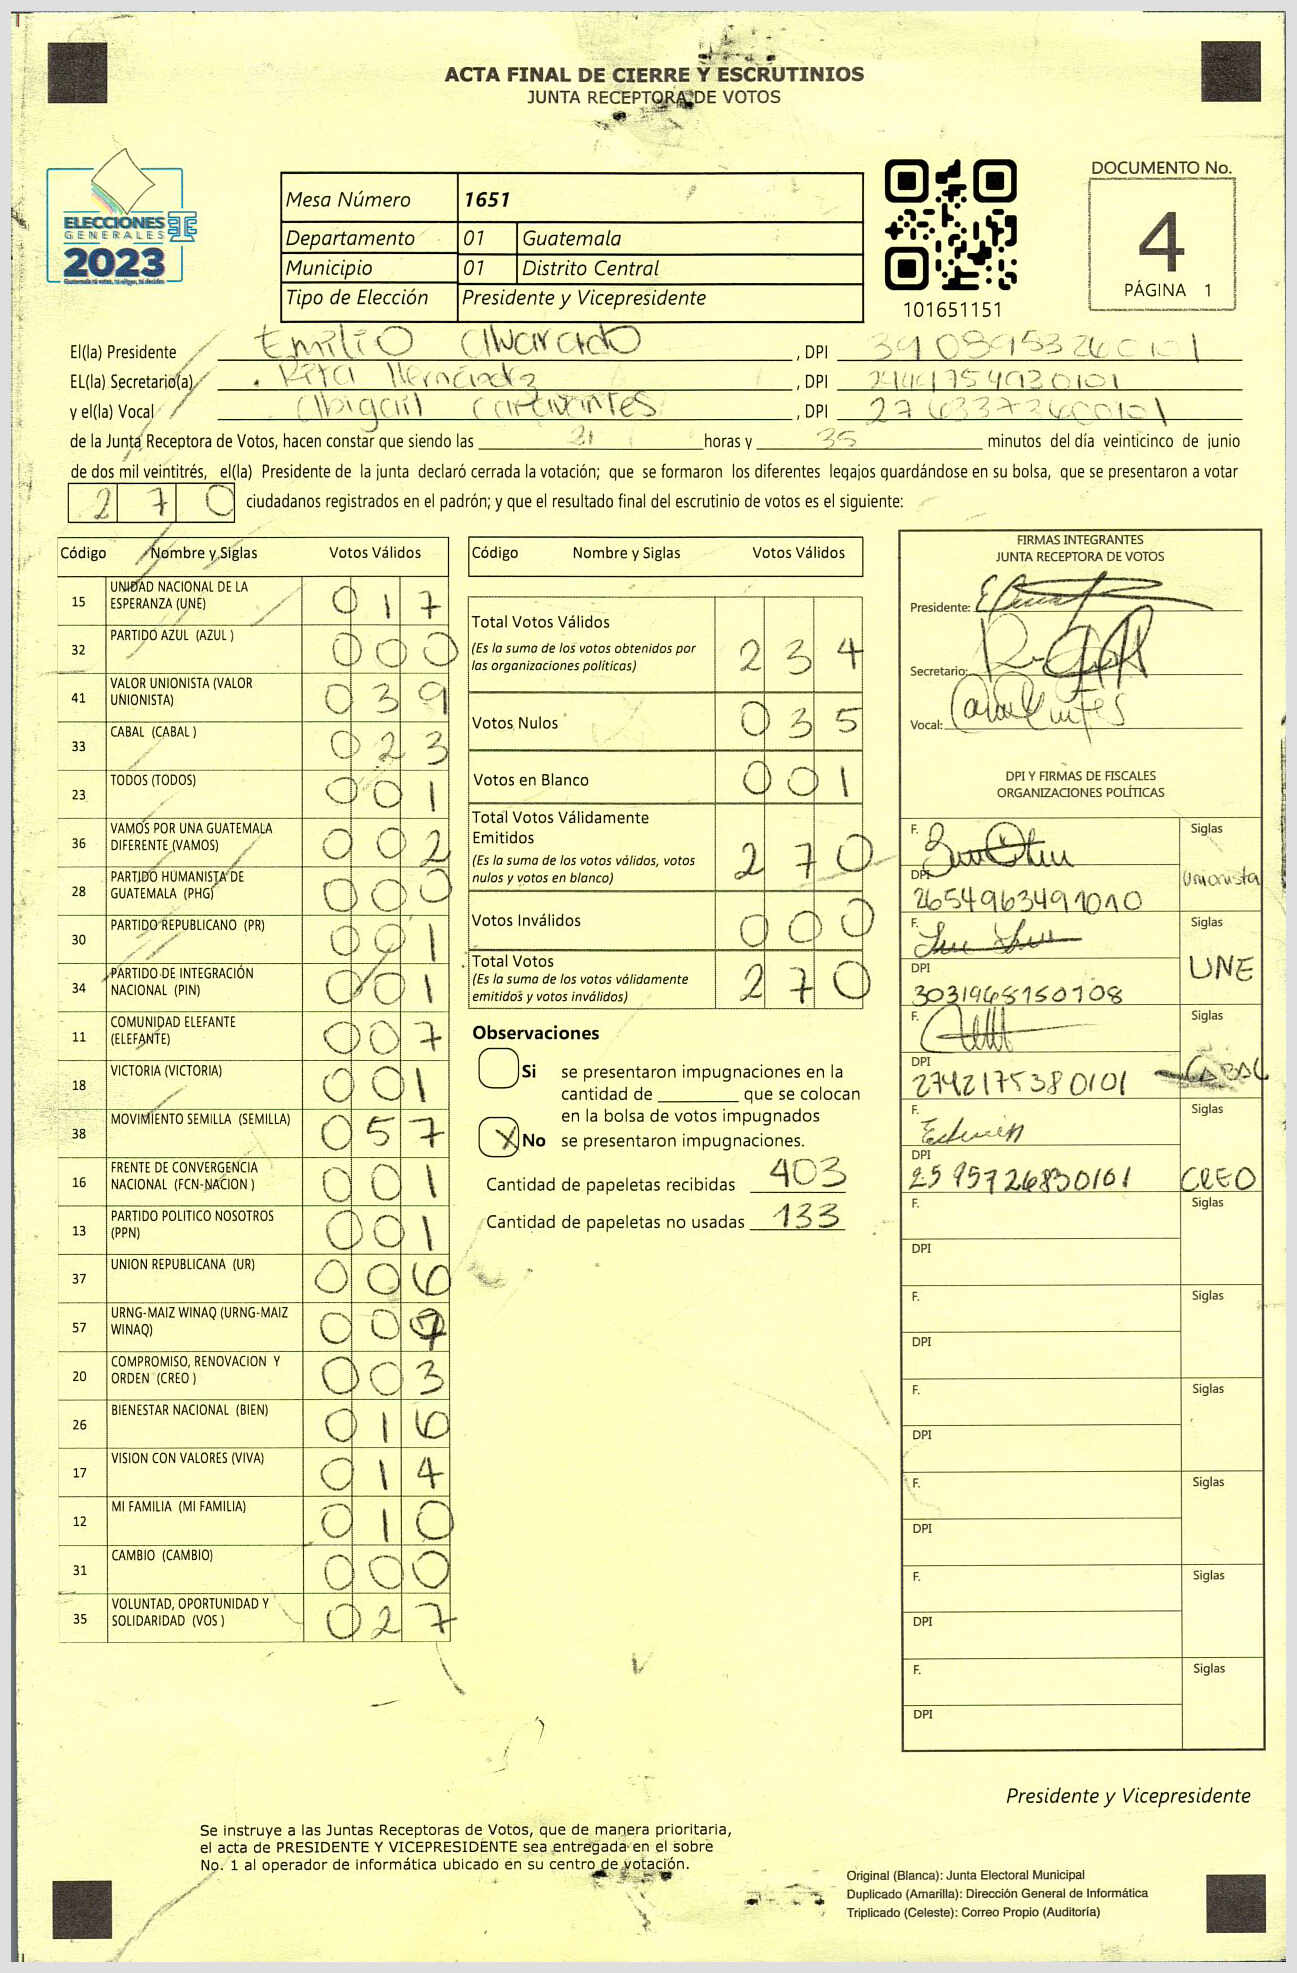 ACTA FINAL DE CIERRE Y ESCRUTINIOS
JUNTA RECEPTORA DE VOTOS
ELECCIONES
GENERALES
2023
Mesa Número 1651
Departamento 01 Guatemala
Municipio 01 Distrito Central
Tipo de Elección Presidente y Vicepresidente
101651151
DOCUMENTO No.
4
PÁGINA 1
El(la) Presidente Emilio Alvarado , DPI
EL(la) Secretario(a) Rita Hernández , DPI 2449754930101
y el(la) Vocal Abigail Cervantes , DPI 2763373600101
de la Junta Receptora de Votos, hacen constar que siendo las 21 horas y 35 minutos del día veinticinco de junio
de dos mil veintitrés, el(la) Presidente de la junta declaró cerrada la votación; que se formaron los diferentes legajos guardándose en su bolsa, que se presentaron a votar
270 ciudadanos registrados en el padrón; y que el resultado final del escrutinio de votos es el siguiente:
Código Nombre y Siglas Votos Válidos
15 UNIDAD NACIONAL DE LA ESPERANZA (UNE) 017
32 PARTIDO AZUL (AZUL ) 000
41 VALOR UNIONISTA (VALOR UNIONISTA) 039
33 CABAL (CABAL ) 023
23 TODOS (TODOS) 001
36 VAMOS POR UNA GUATEMALA DIFERENTE (VAMOS) 002
28 PARTIDO HUMANISTA DE GUATEMALA (PHG) 000
30 PARTIDO REPUBLICANO (PR) 001
34 PARTIDO DE INTEGRACIÓN NACIONAL (PIN) 001
11 COMUNIDAD ELEFANTE (ELEFANTE) 007
18 VICTORIA (VICTORIA) 001
38 MOVIMIENTO SEMILLA (SEMILLA) 057
16 FRENTE DE CONVERGENCIA NACIONAL (FCN-NACION ) 001
13 PARTIDO POLITICO NOSOTROS (PPN) 001
37 UNION REPUBLICANA (UR) 006
57 URNG-MAIZ WINAQ (URNG-MAIZ WINAQ) 007
20 COMPROMISO, RENOVACION Y ORDEN (CREO ) 003
26 BIENESTAR NACIONAL (BIEN) 016
17 VISION CON VALORES (VIVA) 014
12 MI FAMILIA (MI FAMILIA) 010
31 CAMBIO (CAMBIO) 000
35 VOLUNTAD, OPORTUNIDAD Y SOLIDARIDAD (VOS ) 027
Código Nombre y Siglas Votos Válidos
Total Votos Válidos 234
(Es la suma de los votos obtenidos por
las organizaciones políticas)
Votos Nulos 035
Votos en Blanco 001
Total Votos Válidamente
Emitidos 270
(Es la suma de los votos válidos, votos
nulos y votos en blanco)
Votos Inválidos 000
Total Votos 270
(Es la suma de los votos válidamente
emitidos y votos inválidos)
Observaciones
Si se presentaron impugnaciones en la
cantidad de ________ que se colocan
en la bolsa de votos impugnados
X No se presentaron impugnaciones.
Cantidad de papeletas recibidas 403
Cantidad de papeletas no usadas 133
FIRMAS INTEGRANTES
JUNTA RECEPTORA DE VOTOS
Presidente:
Secretario:
Vocal:
DPI Y FIRMAS DE FISCALES
ORGANIZACIONES POLÍTICAS
F. Siglas
DPI Unionista
2654963491010
F. Siglas
DPI UNE
3031968150108
F. Siglas
DPI CABAL
2742175380101
F. Siglas
DPI CREO
2595726830101
F. Siglas
DPI
F. Siglas
DPI
F. Siglas
DPI
F. Siglas
DPI
F. Siglas
DPI
F. Siglas
DPI
Presidente y Vicepresidente
Se instruye a las Juntas Receptoras de Votos, que de manera prioritaria,
el acta de PRESIDENTE Y VICEPRESIDENTE sea entregada en el sobre
No. 1 al operador de informática ubicado en su centro de votación.
Original (Blanca): Junta Electoral Municipal
Duplicado (Amarilla): Dirección General de Informática
Triplicado (Celeste): Correo Propio (Auditoría)